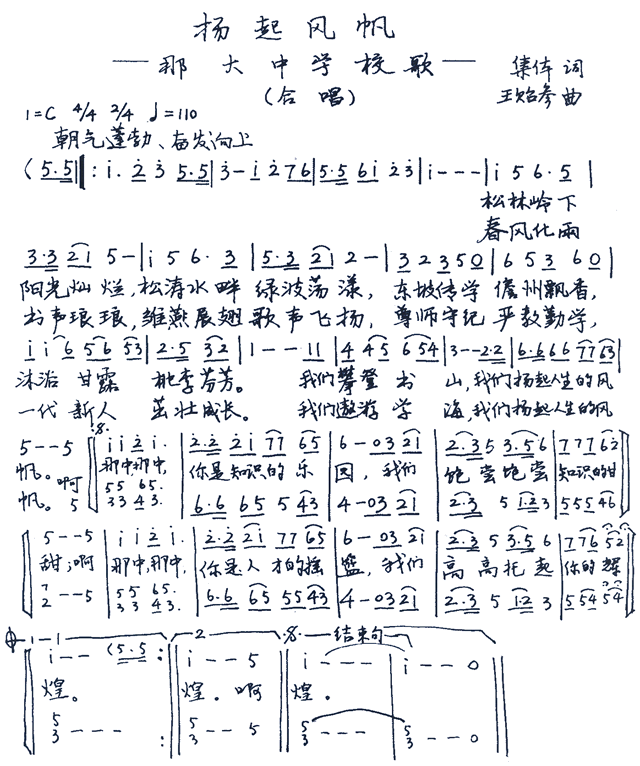 扬起风帆
—那大中学校歌—
集体 词
(合唱)
王贻参 曲
1=C 4/4 2/4 ♩=110
朝气蓬勃、奋发向上
(5.5 ‖: i. 2 3 5.5 | 3 - i 2 7 6 | 5.5 6 i 2 3 | i - - - | i 5 6. 5 |
松林岭下
春风化雨
3.3 2 1 5 - | i 5 6. 3 | 5.3 2 1 2 - | 3 2 3 5 0 | 6 5 3 6 0 |
阳光灿烂,松涛水畔 绿波荡漾, 东坡传学 儋州飘香,
书声琅琅,雏燕展翅 歌声飞扬, 尊师守纪 严教勤学,
i i 6 5 6 5 3 | 2.5 3 2 | 1 - - 1 1 | 4 4 5 6 5 4 | 3 - - 2.2 | 6.6 6 6 7 7 6 3 |
沐浴 甘露 桃李芬芳。 我们攀登 书 山,我们扬起人生的风
一代 新人 茁壮成长。 我们遨游 学 海,我们扬起人生的风
5 - - 5 | i i 2 i. | 2.2 2 i 7 7 6 5 | 6 - 0 3 2 1 | 2.3 5 3.5 6 | 7 7 7 6 2 |
帆。啊 那中,那中, 你是知识的 乐 园,我们 饱尝饱尝 知识的甘
帆。 5 | 5 5 6 5. / 3 3 4 3. | 6.6 6 5 5 4 3 | 4 - 0 3 2 1 | 2.3 5 1.2 3 | 5 5 5 4 6 |
5 - - 5 | i i 2 i. | 2.2 2 i 7 7 6 5 | 6 - 0 3 2 1 | 2.3 5 3.5 6 | 7 7 6 5 2 |
甜;啊 那中,那中, 你是人 才的摇 篮,我们 高 高托 起 你的 辉
7/2 - - 5 | 5 5 6 5. / 3 3 4 3. | 6.6 6 5 5 5 4 3 | 4 - 0 3 2 1 | 2.3 5 1.2 3 | 5 5 4 5 4 |
1 2 𝄋 结束句
i - - (5.5 :‖ i - - 5 ‖ i - - - | i - - 0 ‖
煌。 煌.啊 煌.
5/3 - - - :‖ 5/3 - - 5 ‖ 5/3 - - - | 5/3 - - 0 ‖